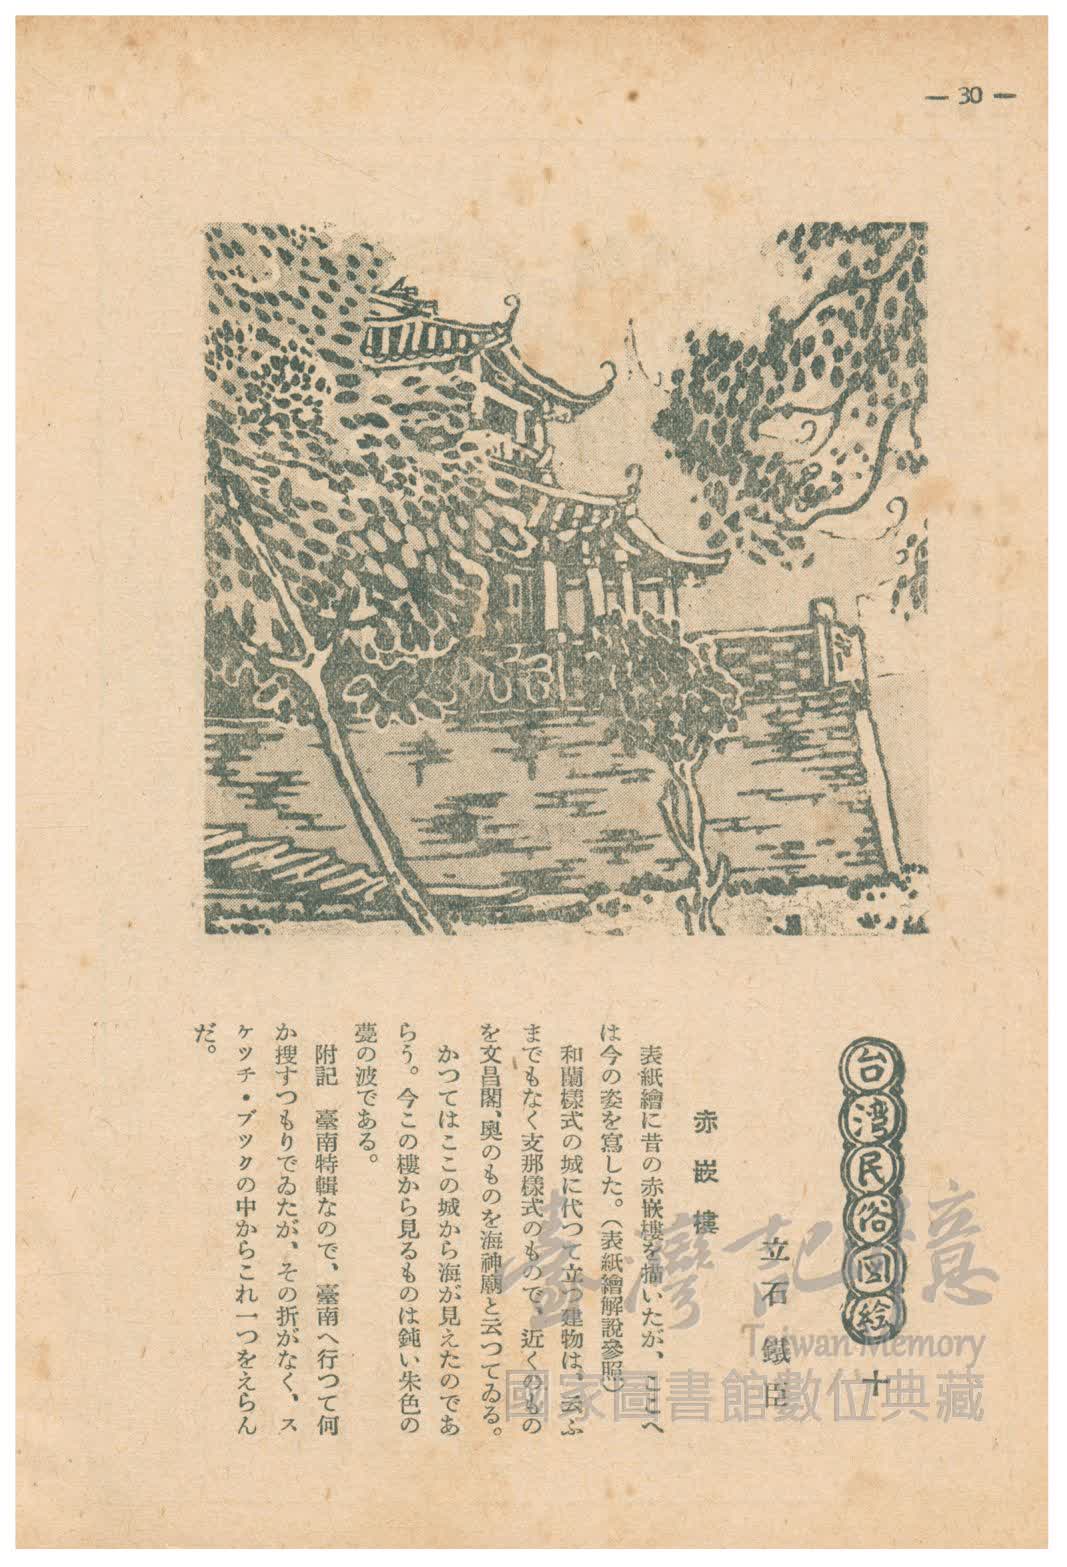 — 30 —
台湾民俗図絵 十
立石 鐵臣
赤嵌樓
表紙繪に昔の赤嵌樓を描いたが、ここへ
は今の姿を寫した。（表紙繪解說參照）
和蘭樣式の城に代つて立つ建物は、云ふ
までもなく支那樣式のもので、近くのもの
を文昌閣、奧のものを海神廟と云つてゐる。
かつてはここの城から海が見えたのであ
らう。今この樓から見るものは鈍い朱色の
甍の波である。
附記　臺南特輯なので、臺南へ行つて何
か搜すつもりでゐたが、その折がなく、ス
ケッチ・ブックの中からこれ一つをえらん
だ。
臺灣記憶
Taiwan Memory
國家圖書館數位典藏